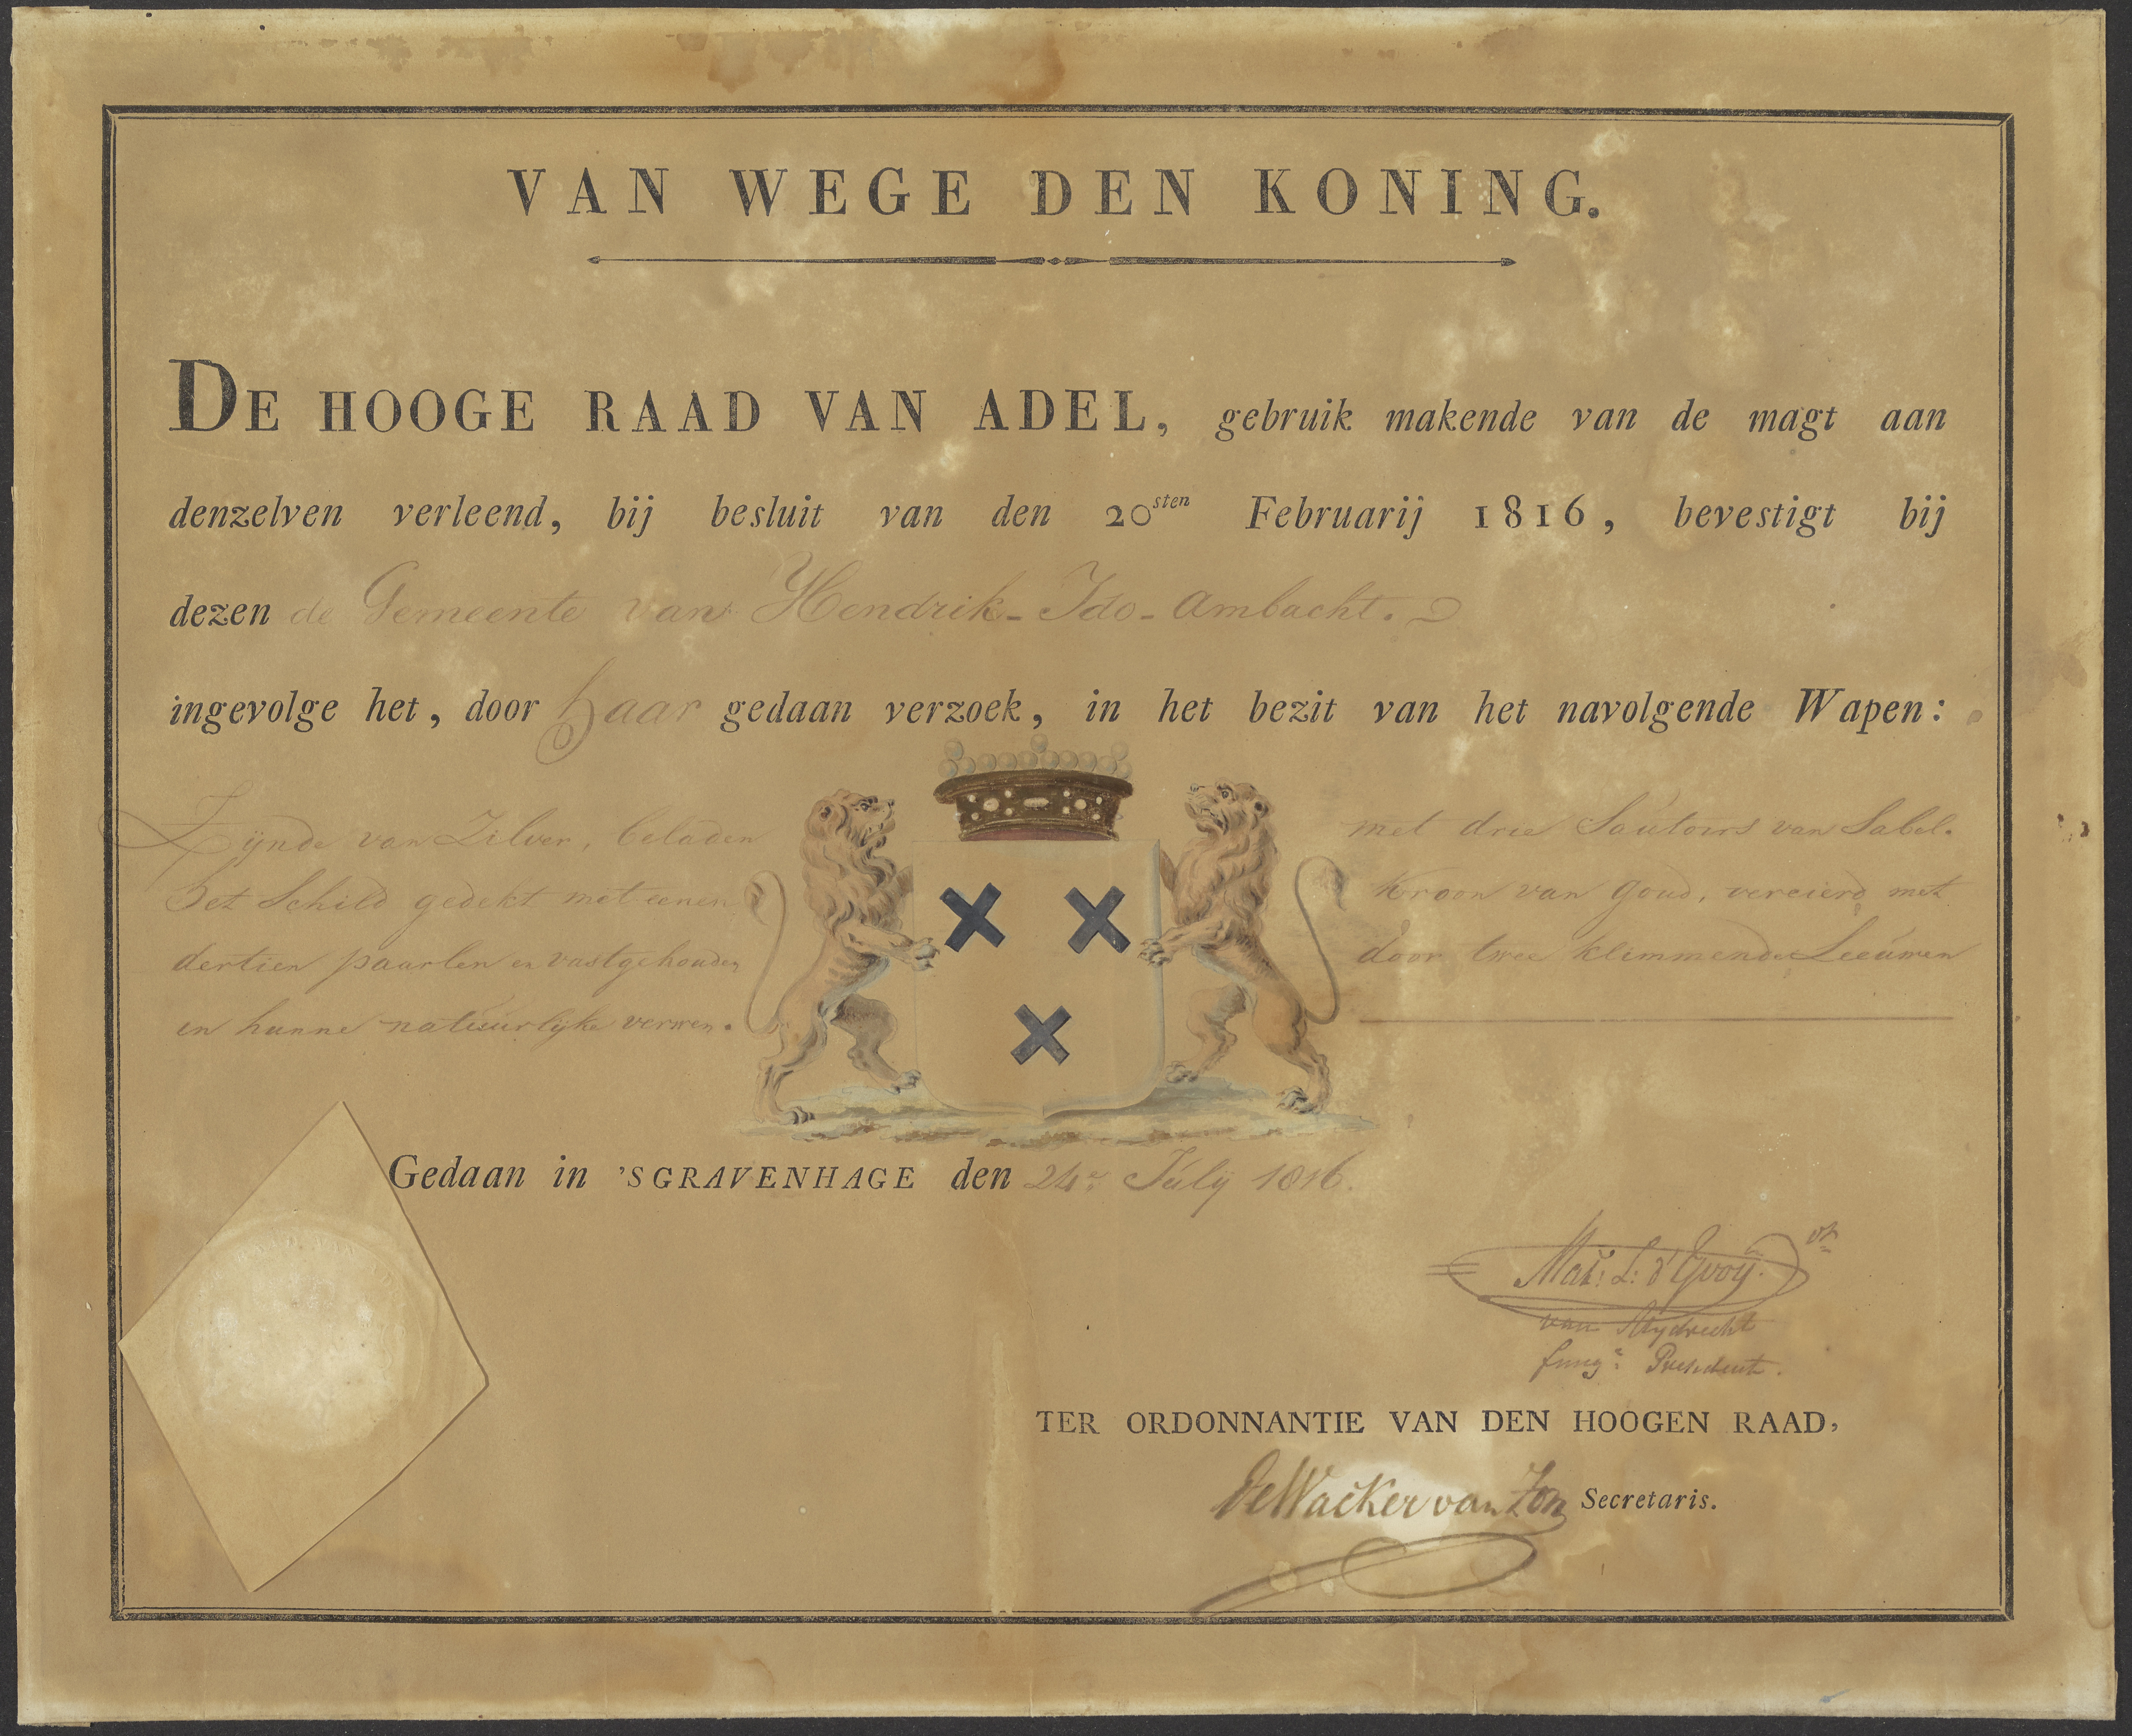 VAN WEGE DEN KONING.
DE HOOGE RAAD VAN ADEL, gebruik makende van de magt aan
denzelven verleend, bij besluit van den 20sten Februarij 1816, bevestigt bij
dezen de Gemeente van Hendrik-Ido-Ambacht.
ingevolge het, door haar gedaan verzoek, in het bezit van het navolgende Wapen:
Zijnde van Zilver, beladen met drie Sautoirs van Sabel.
het Schild gedekt met eenen Kroon van Goud, vercierd met
dertien paarlen en vastgehouden door twee klimmende Leeuwen
in hunne natuurlijke verwen.
Gedaan in 'SGRAVENHAGE den 24e July 1816.
Mat: L: d'Yvoy. vt
van Mydrecht
fung: President.
TER ORDONNANTIE VAN DEN HOOGEN RAAD,
De Wacker van Zon Secretaris.